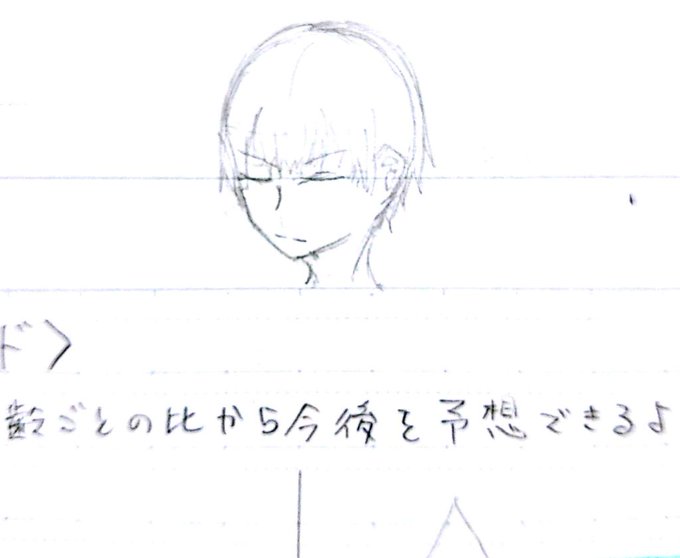 ド〉
齢ごとの比から今後を予想できるよ